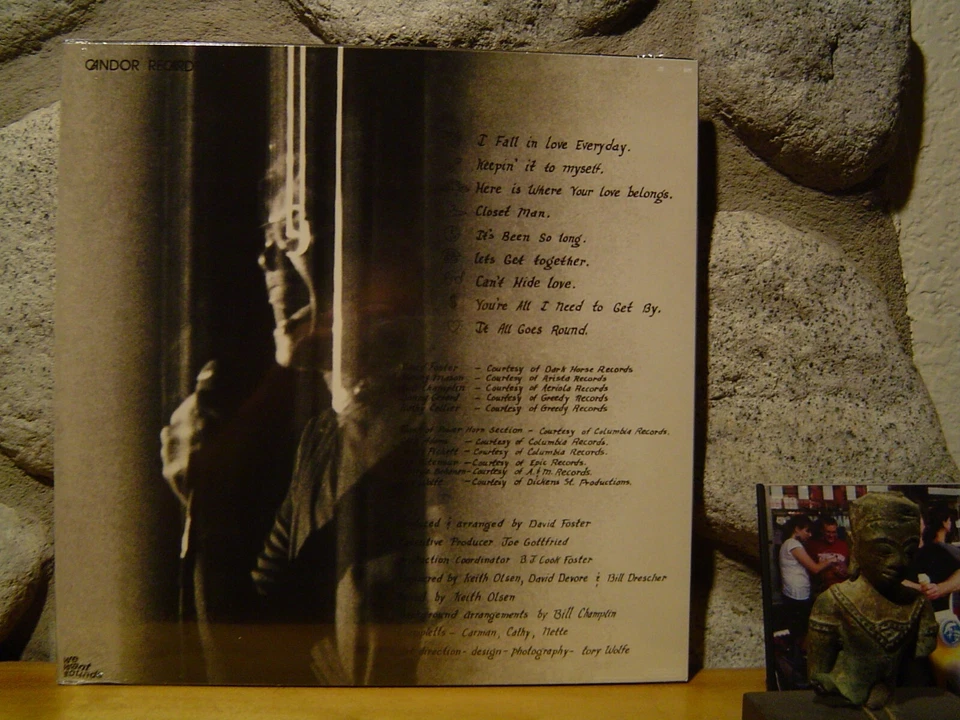 CANDOR RECORDS
I Fall in love Everyday.
Keepin' it to myself.
Here is Where Your love belongs.
Closet Man.
It's Been So long.
lets Get together.
Can't Hide love.
You're All I need to Get By.
It All Goes Round.
Foster - Courtesy of Dark Horse Records
- Courtesy of Arista Records
- Courtesy of Ariola Records
- Courtesy of Greedy Records
- Courtesy of Greedy Records
Horn Section - Courtesy of Columbia Records.
- Courtesy of Columbia Records.
- Courtesy of Columbia Records.
- Courtesy of Epic Records.
- Courtesy of A.&M. Records.
- Courtesy of Dickens St. Productions.
& arranged by David Foster
Producer Joe Gottfried
Coordinator B.J Cook Foster
by Keith Olsen, David Devore & Bill Drescher
by Keith Olsen
arrangements by Bill Champlin
- Carman, Cathy, Nette
direction- design- photography- tory Wolfe
we
want
sounds